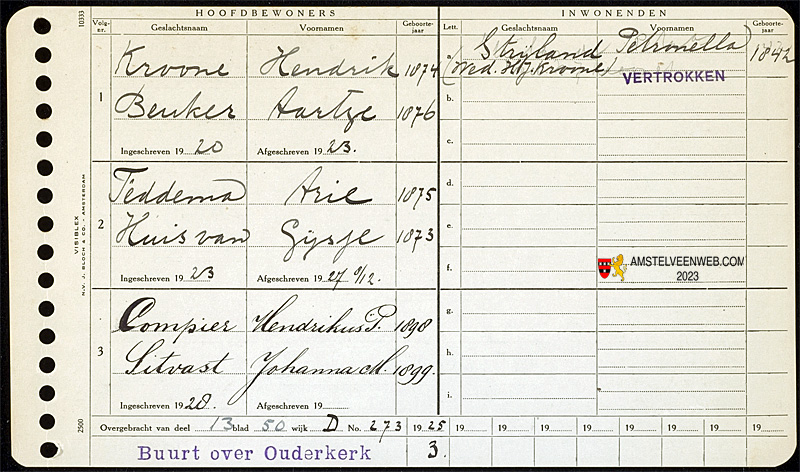 HOOFDBEWONERS
INWONENDEN
Volg-nr.
Geslachtsnaam
Voornamen
Geboorte-jaar
Lett.
Geslachtsnaam
Voornamen
Geboorte-jaar
10333
1
Kroone Hendrik 1874
Beuker Aartje 1876
Ingeschreven 19 20 Afgeschreven 19 23.
Strijland Petronella 1842
(Wed. H.J. Kroone)
VERTROKKEN
b.
c.
2
Teddema Arie 1875
Huis van Gijsje 1873
Ingeschreven 19 23 Afgeschreven 19 27 9/12.
d.
e.
f.
AMSTELVEENWEB.COM
2023
3
Compier Hendrikus P. 1898
Sitvast Johanna M. 1899.
Ingeschreven 19 28. Afgeschreven 19
g.
h.
i.
VISIBLEX
N.V. BLOCH & CO. AMSTERDAM
2500
Overgebracht van deel 13 blad 50 wijk D No. 273 19 25 19 19 19 19 19 19 19 19
Buurt over Ouderkerk 3.